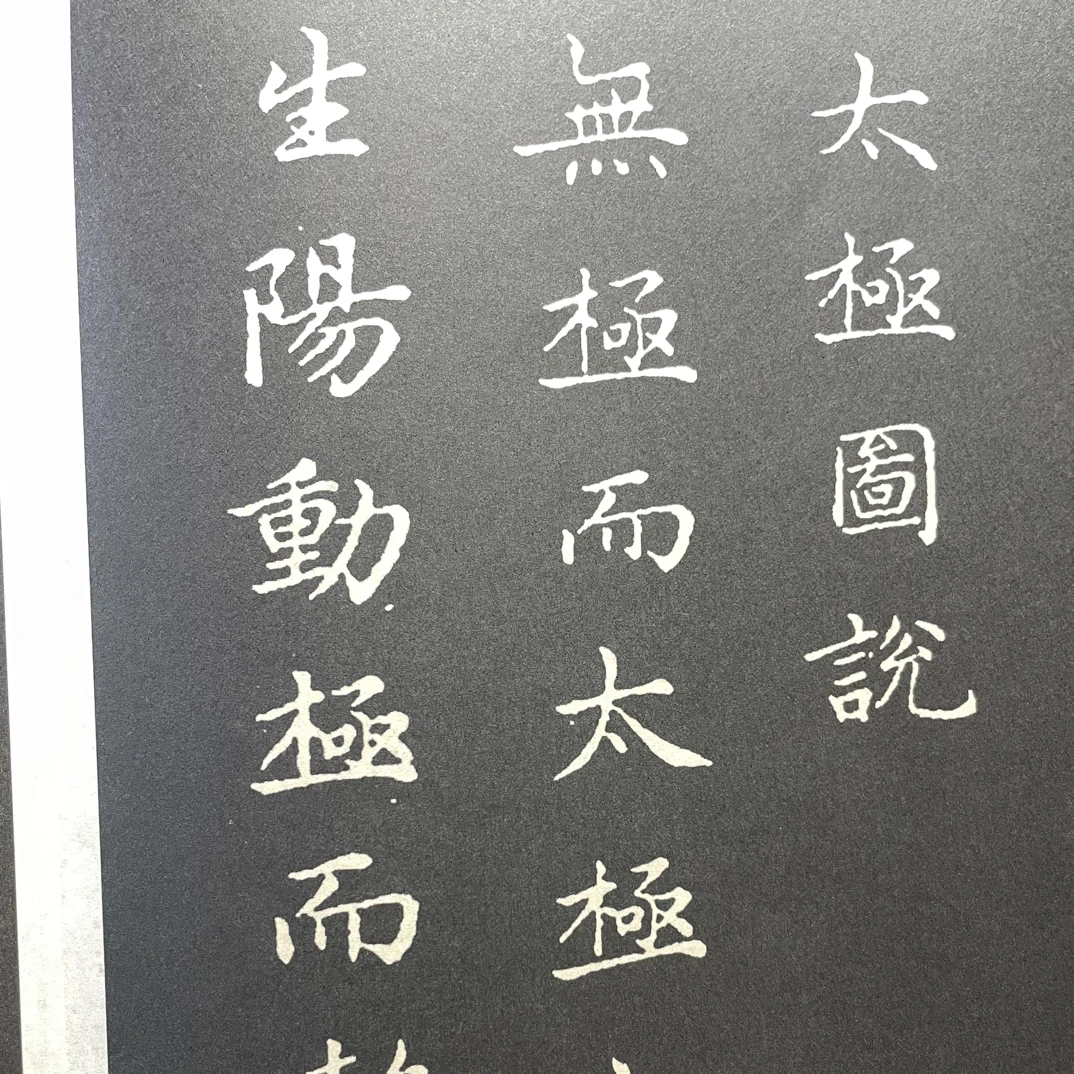 太極圖說
無極而太極
生陽動極而